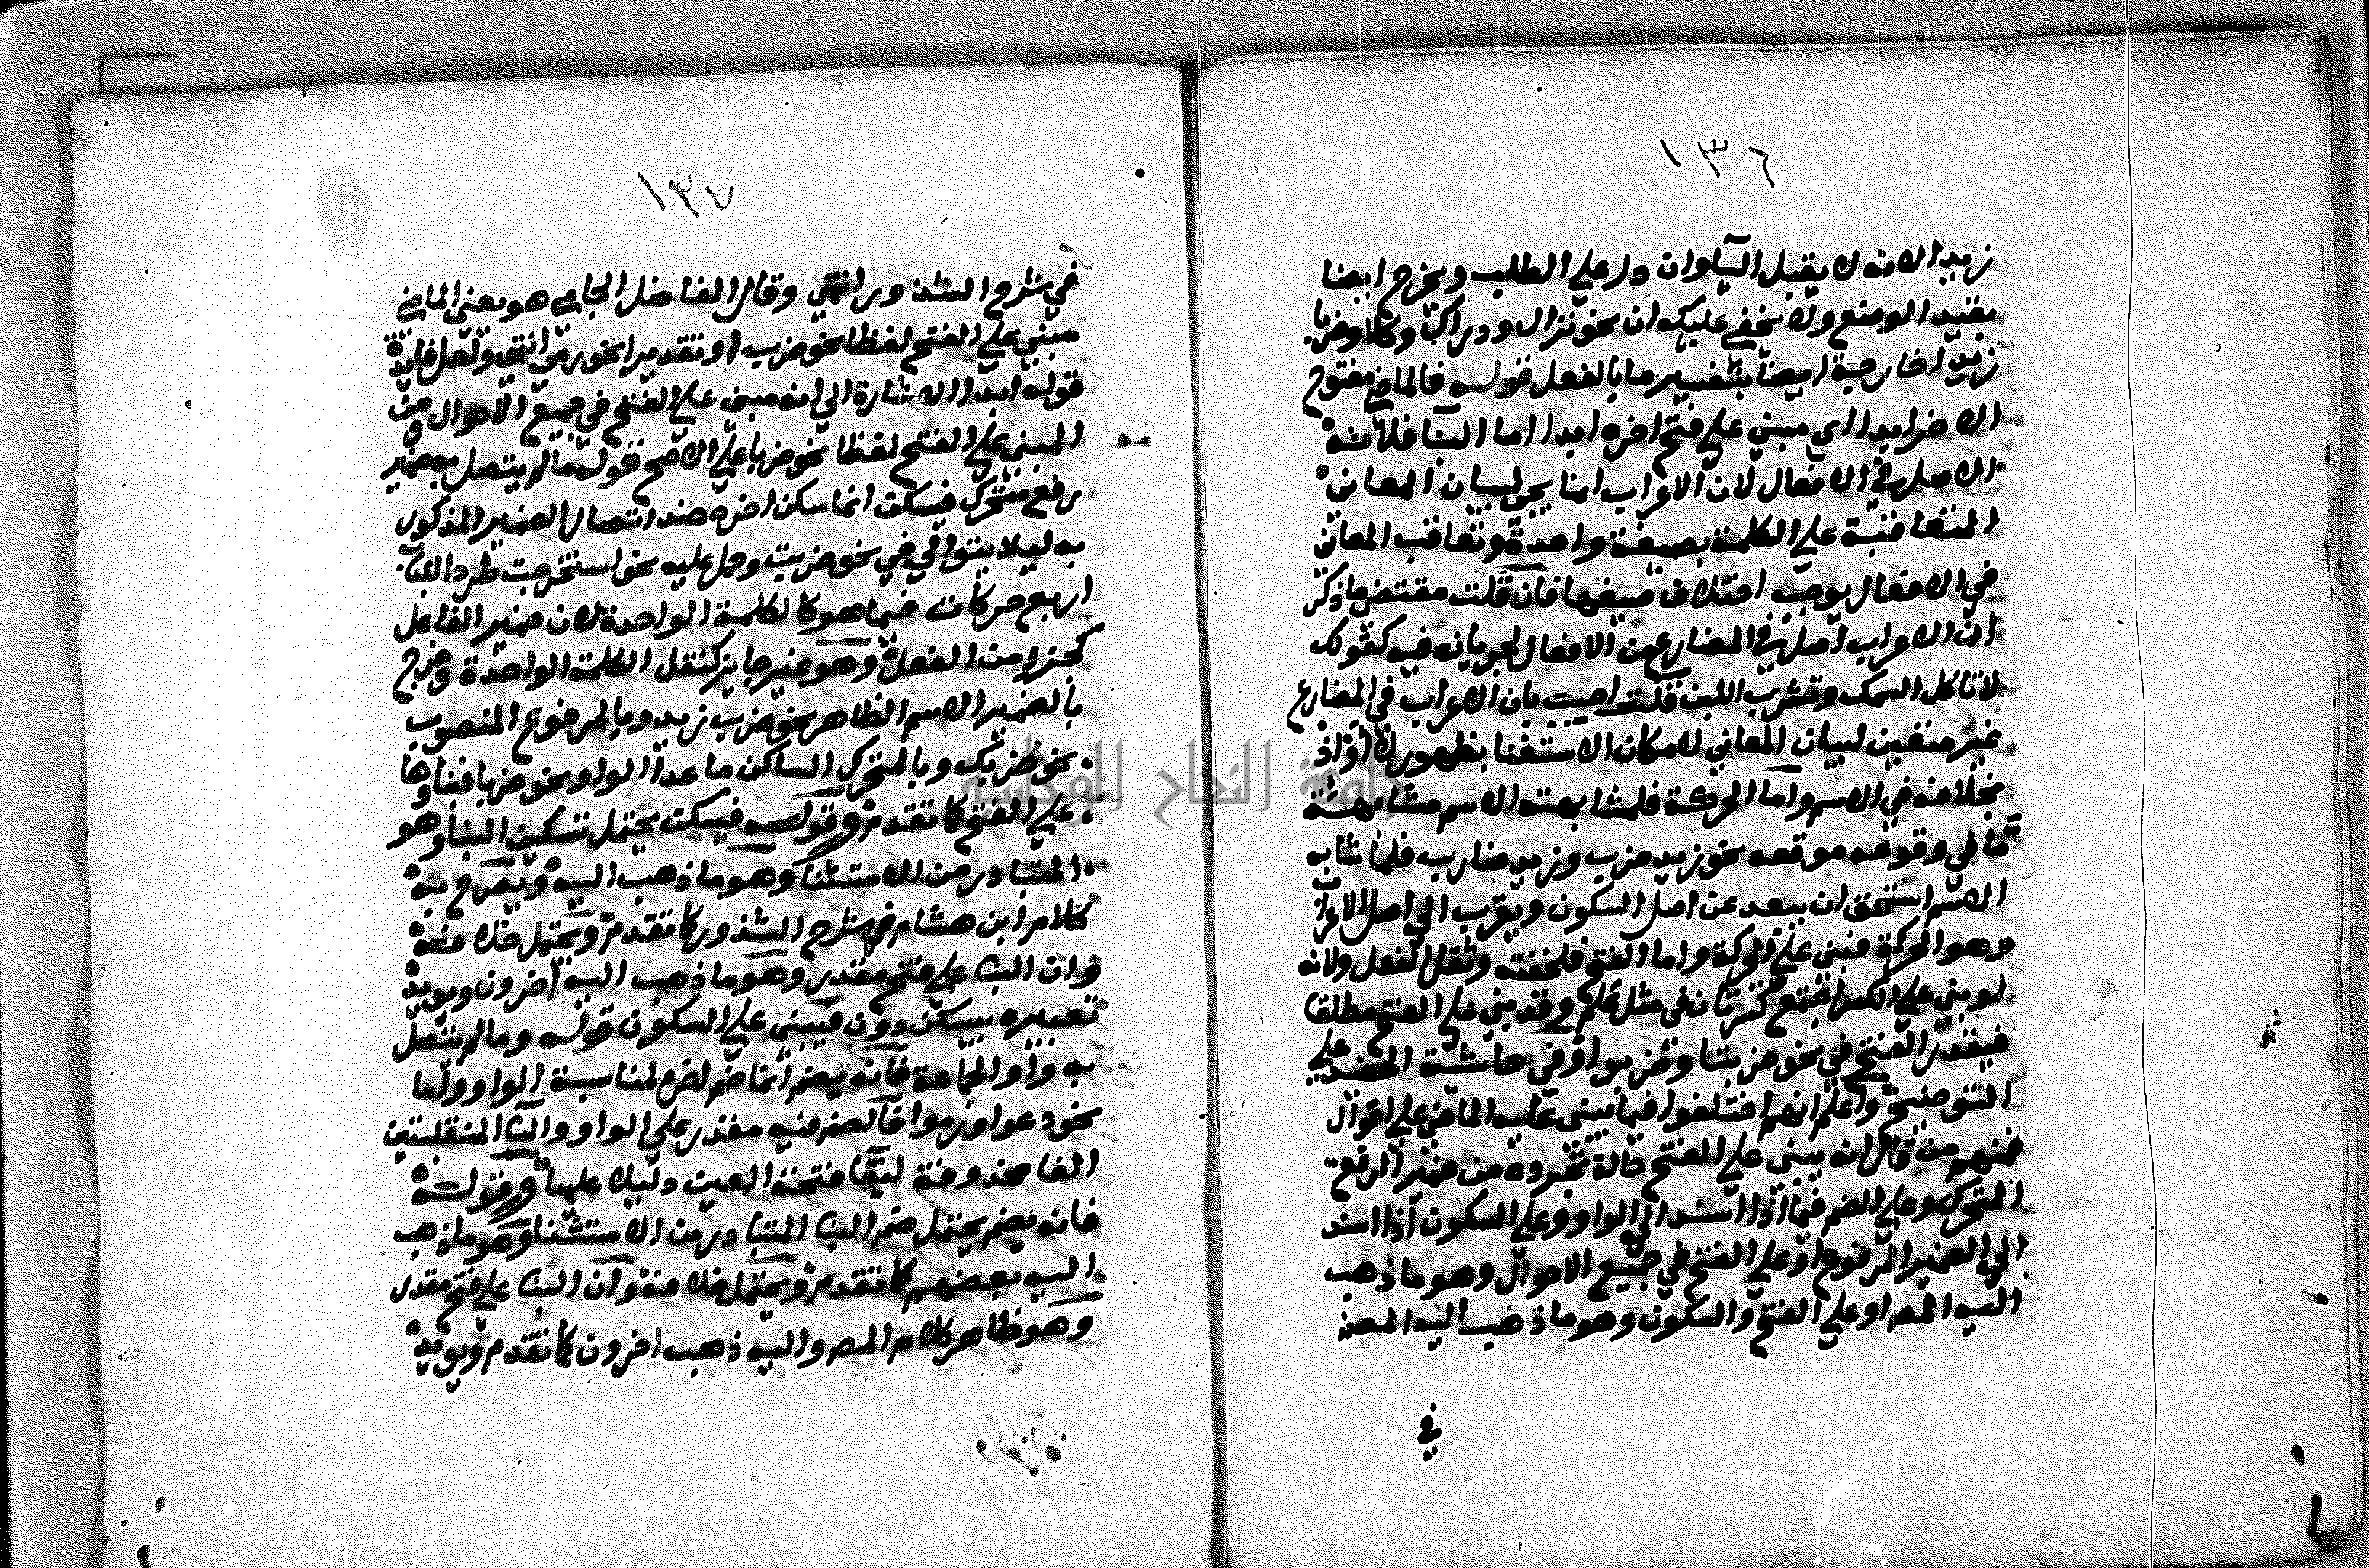 ١٣٦
زيدا لانه لا يقبل اليآ وان دل على الطلب ويخرج ايضا
بقيد الوضع ولا يخفى عليك ان نحو نزال ودراك وكلا وضربا
زيدا خارجية ايضا بتفسير ما بالفعل قوله فالماضي مفتوح
الاخر ابدا اي مبني على فتح اخره ابدا اما البنا فلانه
الاصل في الافعال لان الاعراب انما يجي لبيان المعاني
المتعاقبة على الكلمة بصيغة واحدة وتعاقب المعاني
في الافعال يوجب اختلاف صيغها فان قلت مقتضى ما ذكر
ان الاعراب اصل في المضارع من الافعال لجريانه فيه كقولك
لا تاكل السمك وتشرب اللبن قلت اجيب بان الاعراب في المضارع
غير متعين لبيان المعاني لامكان الاستغنا بظهور ان او اذ
بخلافه في الاسم واما الحركة فلمشابهته الاسم مشابهة
ما في وقوعه موقعه نحو زيد ضرب وزيد ضارب فلما شابه
الاسم استحق ان يبعد عن اصل السكون ويقرب الى اصل الاعراب
وهو الحركة فبنى على الحركة واما الفتح فلخفته وثقل الفعل ولانه
لو بنى على الكسر اجتمع كسرتان في مثل علم وقد بنى على الفتح مطلقا
فيقدر الفتح في نحو ضربنا وضربوا وفي حاشية الحفيد على
التوضيح واعلم انهم اختلفوا فيما يبنى عليه الماضي على اقوال
فمنهم من قال انه يبنى على الفتح حالة تجرده من ضمير الرفع
المتحرك وعلى الضم فيما اذا اسند الى الواو وعلى السكون اذا اسند
الى الضمير المرفوع او على الفتح في جميع الاحوال وهو ما ذهب
اليه المص او على الفتح والسكون وهو ما ذهب اليه المص
في
١٣٧
في شرح الشذور انتهى وقال الفاضل الجامي هو يعني الماضي
مبني على الفتح لفظا نحو ضرب او تقديرا نحو رمى انتهى ولعل فايدة
قوله ابدا الاشارة الى انه مبنى على الفتح في جميع الاحوال ومن
المبنى على الفتح لفظا نحو ضربا على الاصح قوله ما لم يتصل به ضمير
رفع متحرك فيسكن انما سكن اخره عند اتصال الضمير المذكور
به ليلا يتوالى في نحو ضربت وحمل عليه نحو استخرجت طردا للباب
اربع حركات فيما هو كالكلمة الواحدة لان ضمير الفاعل
كجزء من الفعل وهو غير جايز كنقل الكلمة الواحدة وخرج
بالضمير الاسم الظاهر نحو ضرب زيد وبالمرفوع المنصوب
نحو ضربك وبالمتحرك الساكن ما عدا الواو نحو ضربا فبناوها
على الفتح كما تقدم وقوله فيسكن يحتمل تسكين البنا وهو
المتبادر من الاستثنا وهو ما ذهب اليه ويصرح به
كلام ابن هشام في شرح الشذور كما تقدم ويحتمل خلافه
وان البنا على فتح مقدر وهو ما ذهب اليه اخرون ويويده
تعبيره بيسكن دون فيبنى على السكون قوله وما لم يتصل
به واو الجماعة فانه يضم انما ضم اخره لمناسبة الواو واما
نحو دعوا ورموا فالضم فيه مقدر على الواو واليا المنقلبتين
الفا محذوفة لبقا فتحة العين دليلا عليها وقوله
فانه يضم يحتمل ضم البنا المتبادر من الاستثنا وهو ما ذهب
اليه بعضهم كما تقدم ويحتمل خلافه وان البنا على فتح مقدر
وهو ظاهر كلام المص واليه ذهب اخرون كما تقدم ويويده
جامعة النجاح الوطنية